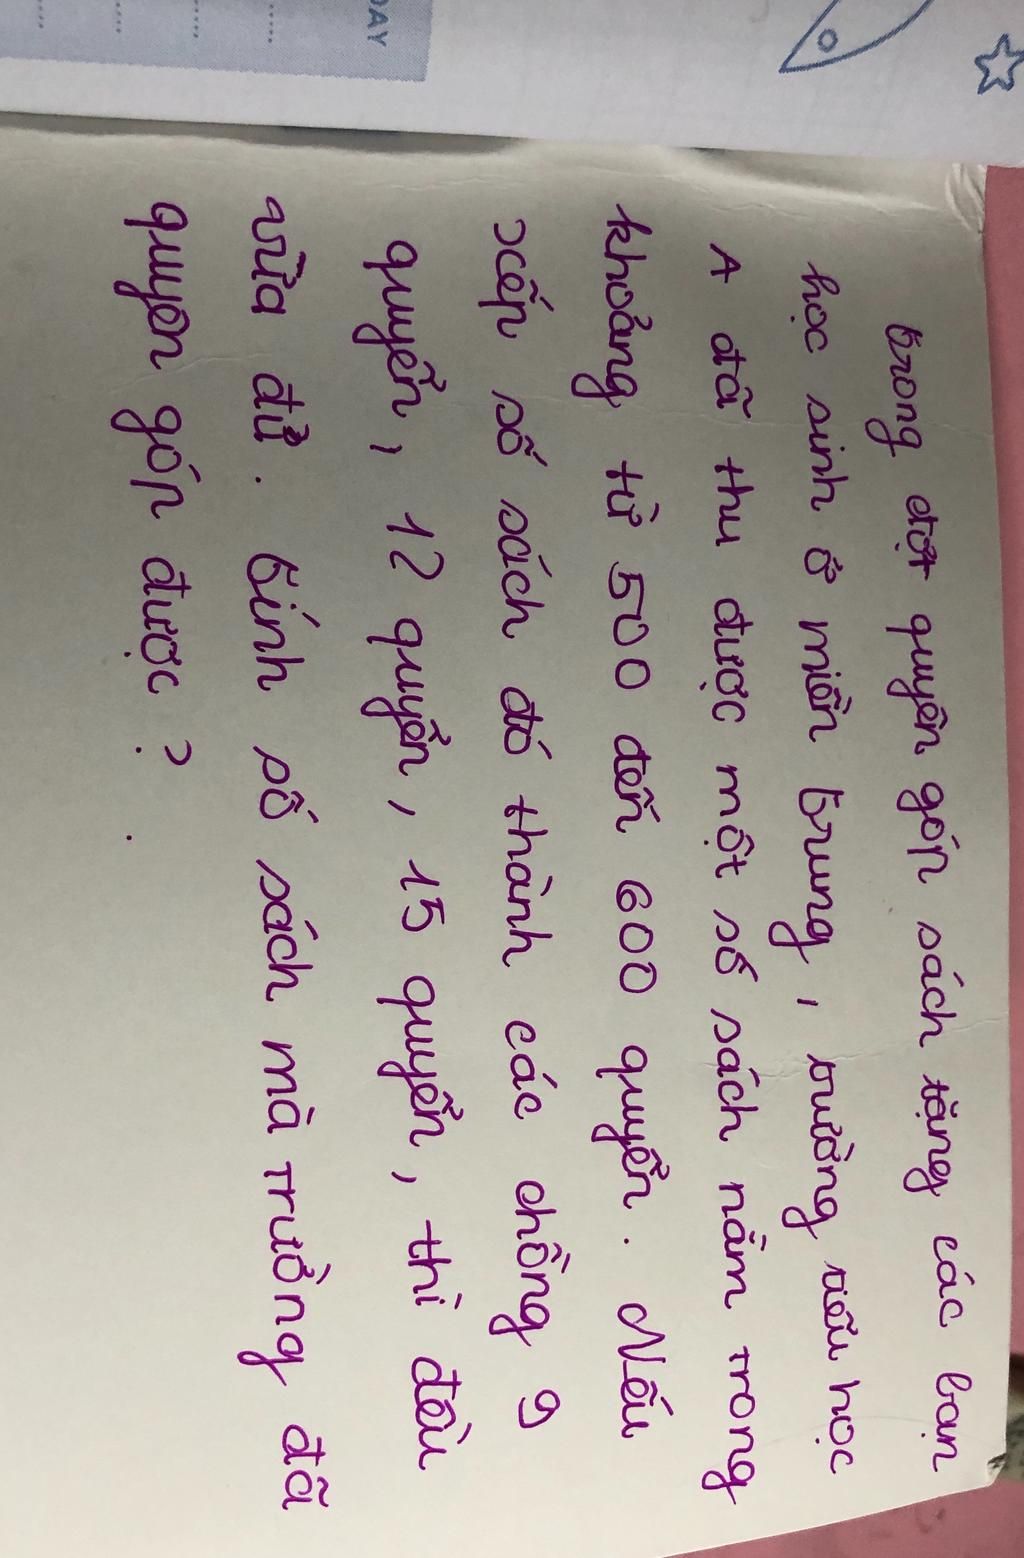 DAY
trong đợt quyên góp sách tặng các bạn
học sinh ở miền trung, trường tiểu học
A đã thu được một số sách nằm trong
khoảng từ 500 đến 600 quyển. Nếu
xếp số sách đó thành các chồng 9
quyển, 12 quyển, 15 quyển, thì đều
vừa đủ. tính số sách mà trường đã
quyên góp được?